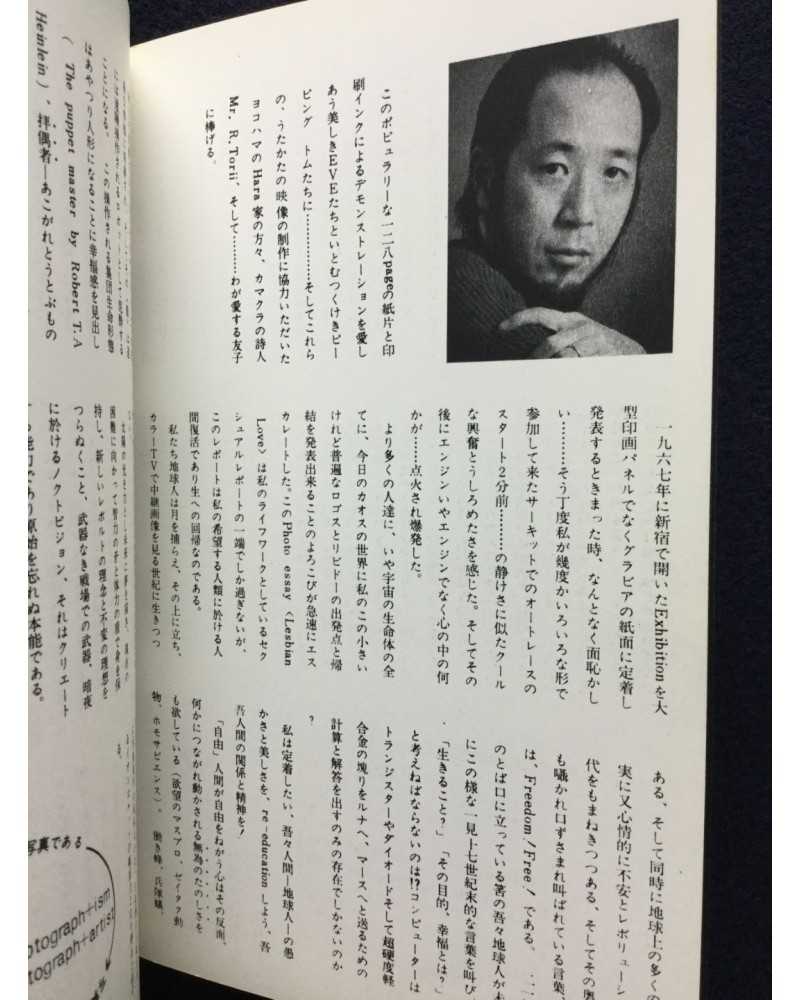 このポピュラリーな一二八pageの紙片と印
刷インクによるデモンストレーションを愛し
あう美しきEVEたちといとむつくけきピー
ピング トムたちに……………そしてこれら
の、うたかたの映像の制作に協力いただいた
ヨコハマのHara家の方々、カマクラの詩人
Mr. R.Torii、そして………わが愛する友子
に捧げる。
一九六七年に新宿で開いたExhibitionを大
型印画パネルでなくグラビアの紙面に定着し
発表するときまった時、なんとなく面恥かし
い………そう丁度私が幾度かいろいろな形で
参加して来たサーキットでのオートレースの
スタート2分前………の静けさに似たクール
な興奮とうしろめたさを感じた。そしてその
後にエンジンいやエンジンでなく心の中の何
かが……点火され爆発した。
より多くの人達に、いや宇宙の生命体の全
てに、今日のカオスの世界に私のこの小さい
けれど普遍なロゴスとリビドーの出発点と帰
結を発表出来ることのよろこびが急速にエス
カレートした。このPhoto essay〈Lesbian
Love〉は私のライフワークとしているセク
シュアルレポートの一端でしか過ぎないが、
このレポートは私の希望する人類に於ける人
間復活であり生への回帰なのである。
私たち地球人は月を捕らえ、その上に立ち、
カラーTVで中継画像を見る世紀に生きつつ
ある、そして同時に地球上の多く
実に又心情的に不安とレボリューシ
代をもまねきつつある、そしてその奥
も囁かれ口ずさまれ叫ばれている言葉
は、Freedom! Free! である。
のとば口に立っている筈の吾々地球人が
にこの様な一見十七世紀末的な言葉を叫び
「生きること?」「その目的、幸福とは?」
と考えねばならないのは!?コンピューターは
トランジスターやダイオードそして超硬度軽
合金の塊りをルナへ、マースへと送るための
計算と解答を出すのみの存在でしかないのか
?
私は定着したい、吾々人間—地球人—の愚
かさと美しさを、re-educationしよう、吾
吾人間の関係と精神を!
「自由」人間が自由をねがう心はその反面、
何かにつながれ動かされる無為のたのしさを
も欲している(欲望のマスプロ、ゼイタク動
物、ホモサピエンス)。働き蜂、兵隊蟻、
ことになる。この操作される集団生命形態
はあやつり人形になることに幸福感を見出し
( The puppet master by Robert T.A
Heinlein)、拝偶者—あこがれとうとぶもの
持し、新しいレボルトの理念と不変の理想を
つらぬくこと、武器なき戦場での武器、暗夜
に於けるノクトビジョン、それはクリエート
する能力であり原始を忘れぬ本能である。
写真である
otograph+ism
tograph+artist